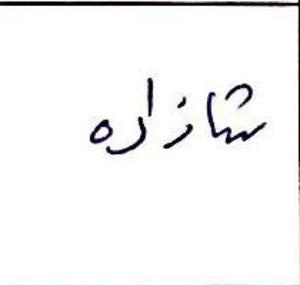 شازاده